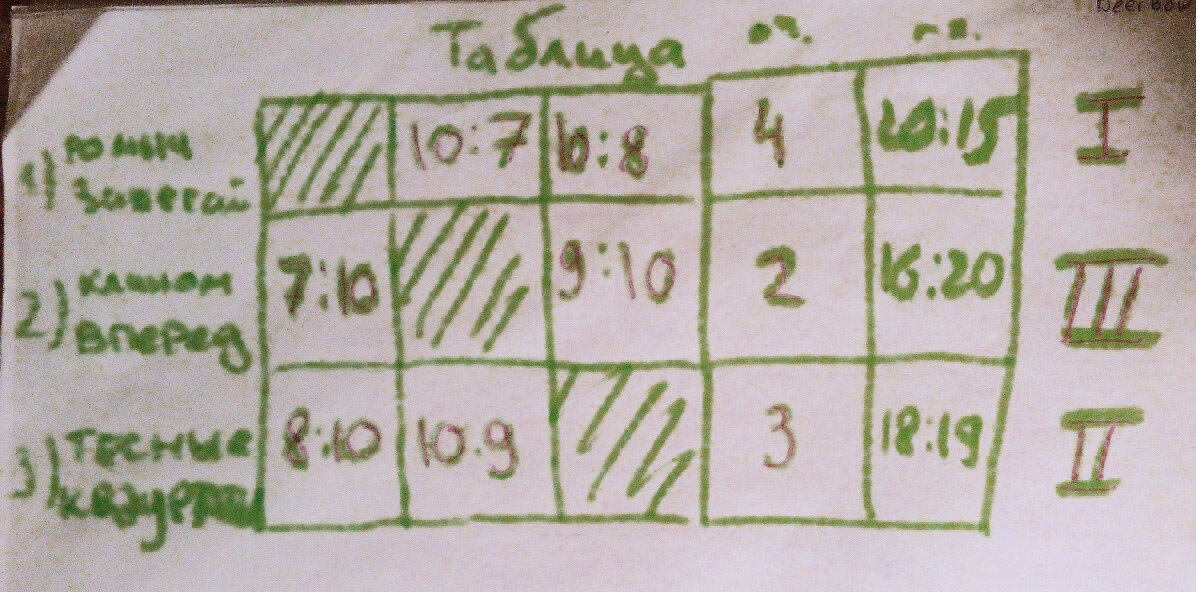 Таблица оч.
1) Ромыч
Залегай
10:7 10:8 4 20:15 I
2) Клином
Вперед
7:10 9:10 2 16:20 III
3) Тесные
8:10 10:9 3 18:19 II